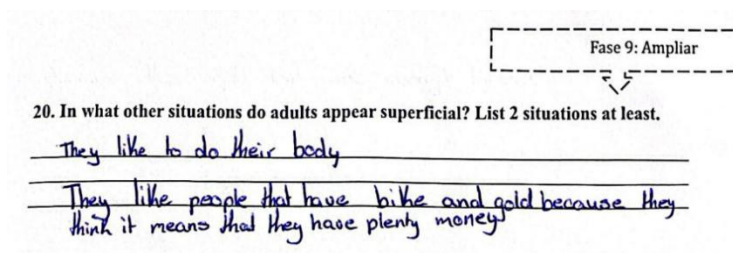 Fase 9: Ampliar
20. In what other situations do adults appear superficial? List 2 situations at least.
They like to do their body
They like people that have bike and gold because they
think it means that they have plenty money